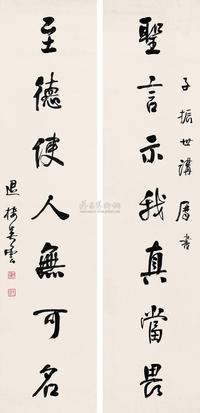 子振世講屬書
聖言示我真當畏
至德使人無可名
退樓吳雲